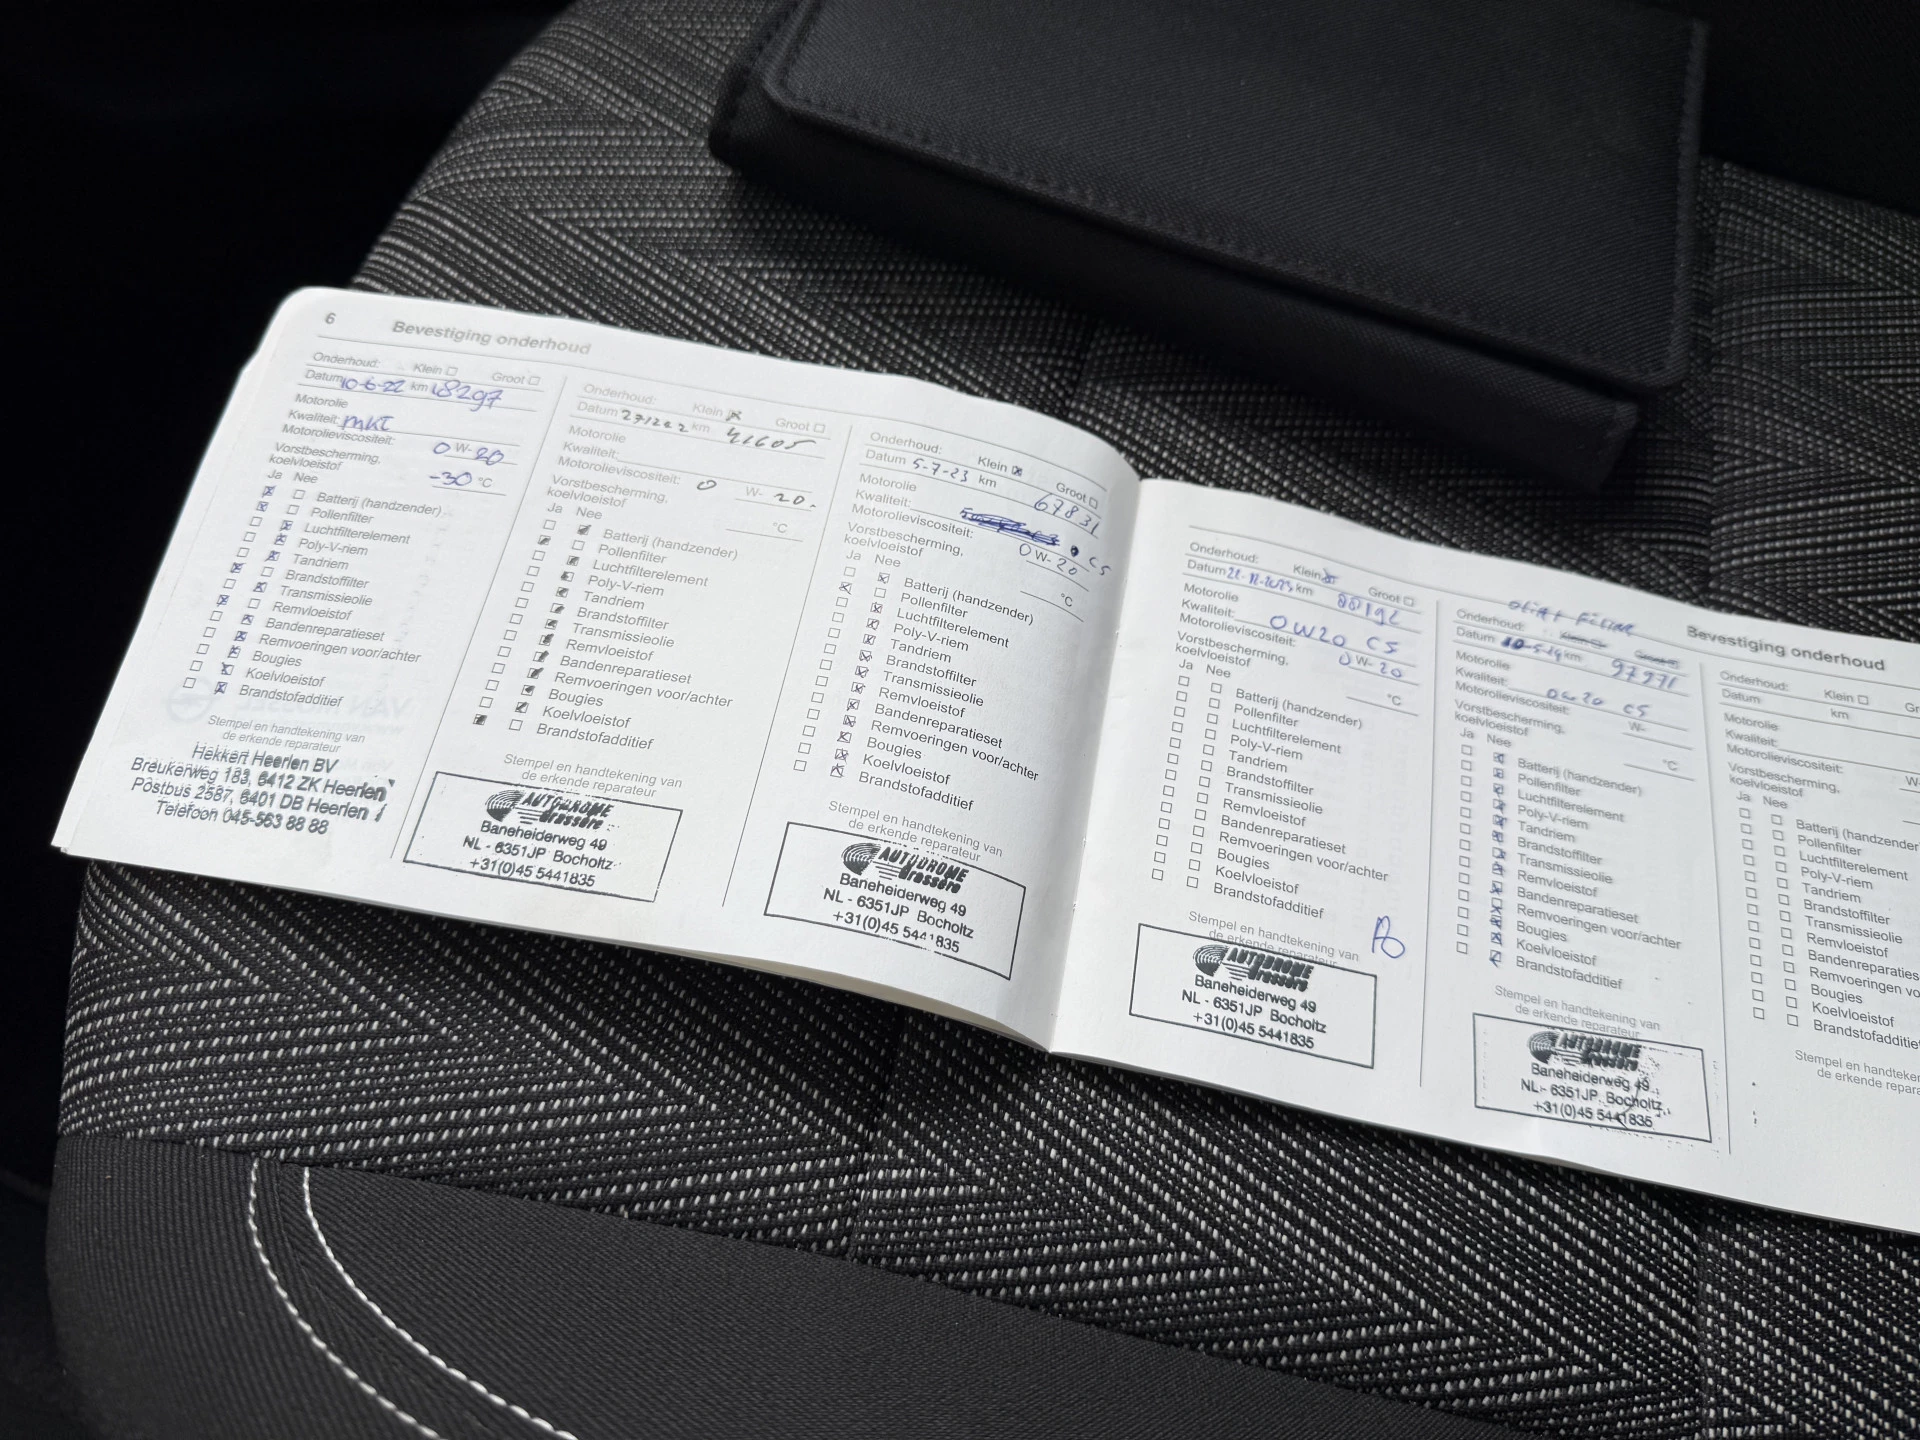 6
Bevestiging onderhoud
Onderhoud: Klein Groot
Datum 10-6-22 km 18297
Motorolie
Kwaliteit: MKT
Motorolieviscositeit: 0 W- 20
Vorstbescherming,
koelvloeistof -30 °C
Ja Nee
Batterij (handzender)
Pollenfilter
Luchtfilterelement
Poly-V-riem
Tandriem
Brandstoffilter
Transmissieolie
Remvloeistof
Bandenreparatieset
Remvoeringen voor/achter
Bougies
Koelvloeistof
Brandstofadditief
Stempel en handtekening van
de erkende reparateur
Hekkert Heerlen BV
Breukerweg 183, 6412 ZK Heerlen
Postbus 2587, 6401 DB Heerlen
Telefoon 045-563 88 88
Onderhoud: Klein Groot
Datum km 41605
Motorolie
Kwaliteit:
Motorolieviscositeit: 0 W- 20.
Vorstbescherming,
koelvloeistof °C
Ja Nee
Batterij (handzender)
Pollenfilter
Luchtfilterelement
Poly-V-riem
Tandriem
Brandstoffilter
Transmissieolie
Remvloeistof
Bandenreparatieset
Remvoeringen voor/achter
Bougies
Koelvloeistof
Brandstofadditief
Stempel en handtekening van
de erkende reparateur
AUTODROME
Brassére
Baneheiderweg 49
NL - 6351JP Bocholtz
+31(0)45 5441835
Onderhoud: Klein Groot
Datum 5-7-23 km 67831
Motorolie
Kwaliteit: C5
Motorolieviscositeit: 0 W- 20
Vorstbescherming,
koelvloeistof °C
Ja Nee
Batterij (handzender)
Pollenfilter
Luchtfilterelement
Poly-V-riem
Tandriem
Brandstoffilter
Transmissieolie
Remvloeistof
Bandenreparatieset
Remvoeringen voor/achter
Bougies
Koelvloeistof
Brandstofadditief
Stempel en handtekening van
de erkende reparateur
AUTODROME
Brassére
Baneheiderweg 49
NL - 6351JP Bocholtz
+31(0)45 5441835
Onderhoud: Klein Groot
Datum km
Motorolie
Kwaliteit: 0W20 C5
Motorolieviscositeit: 0 W- 20
Vorstbescherming,
koelvloeistof °C
Ja Nee
Batterij (handzender)
Pollenfilter
Luchtfilterelement
Poly-V-riem
Tandriem
Brandstoffilter
Transmissieolie
Remvloeistof
Bandenreparatieset
Remvoeringen voor/achter
Bougies
Koelvloeistof
Brandstofadditief
Stempel en handtekening van
de erkende reparateur
AUTODROME
Brassére
Baneheiderweg 49
NL - 6351JP Bocholtz
+31(0)45 5441835
Bevestiging onderhoud
Onderhoud: Klein Groot
Datum km 97971
Motorolie
Kwaliteit: 0W20 C5
Motorolieviscositeit: W-
Vorstbescherming,
koelvloeistof °C
Ja Nee
Batterij (handzender)
Pollenfilter
Luchtfilterelement
Poly-V-riem
Tandriem
Brandstoffilter
Transmissieolie
Remvloeistof
Bandenreparatieset
Remvoeringen voor/achter
Bougies
Koelvloeistof
Brandstofadditief
Stempel en handtekening van
de erkende reparateur
AUTODROME
Brassére
Baneheiderweg 49
NL - 6351JP Bocholtz
+31(0)45 5441835
Onderhoud: Klein Gr
Datum km
Motorolie
Kwaliteit:
Motorolieviscositeit: W-
Vorstbescherming,
koelvloeistof
Ja Nee
Batterij (handzender
Pollenfilter
Luchtfilterelement
Poly-V-riem
Tandriem
Brandstoffilter
Transmissieolie
Remvloeistof
Bandenreparaties
Remvoeringen vo
Bougies
Koelvloeistof
Brandstofadditief
Stempel en handteken
de erkende repara